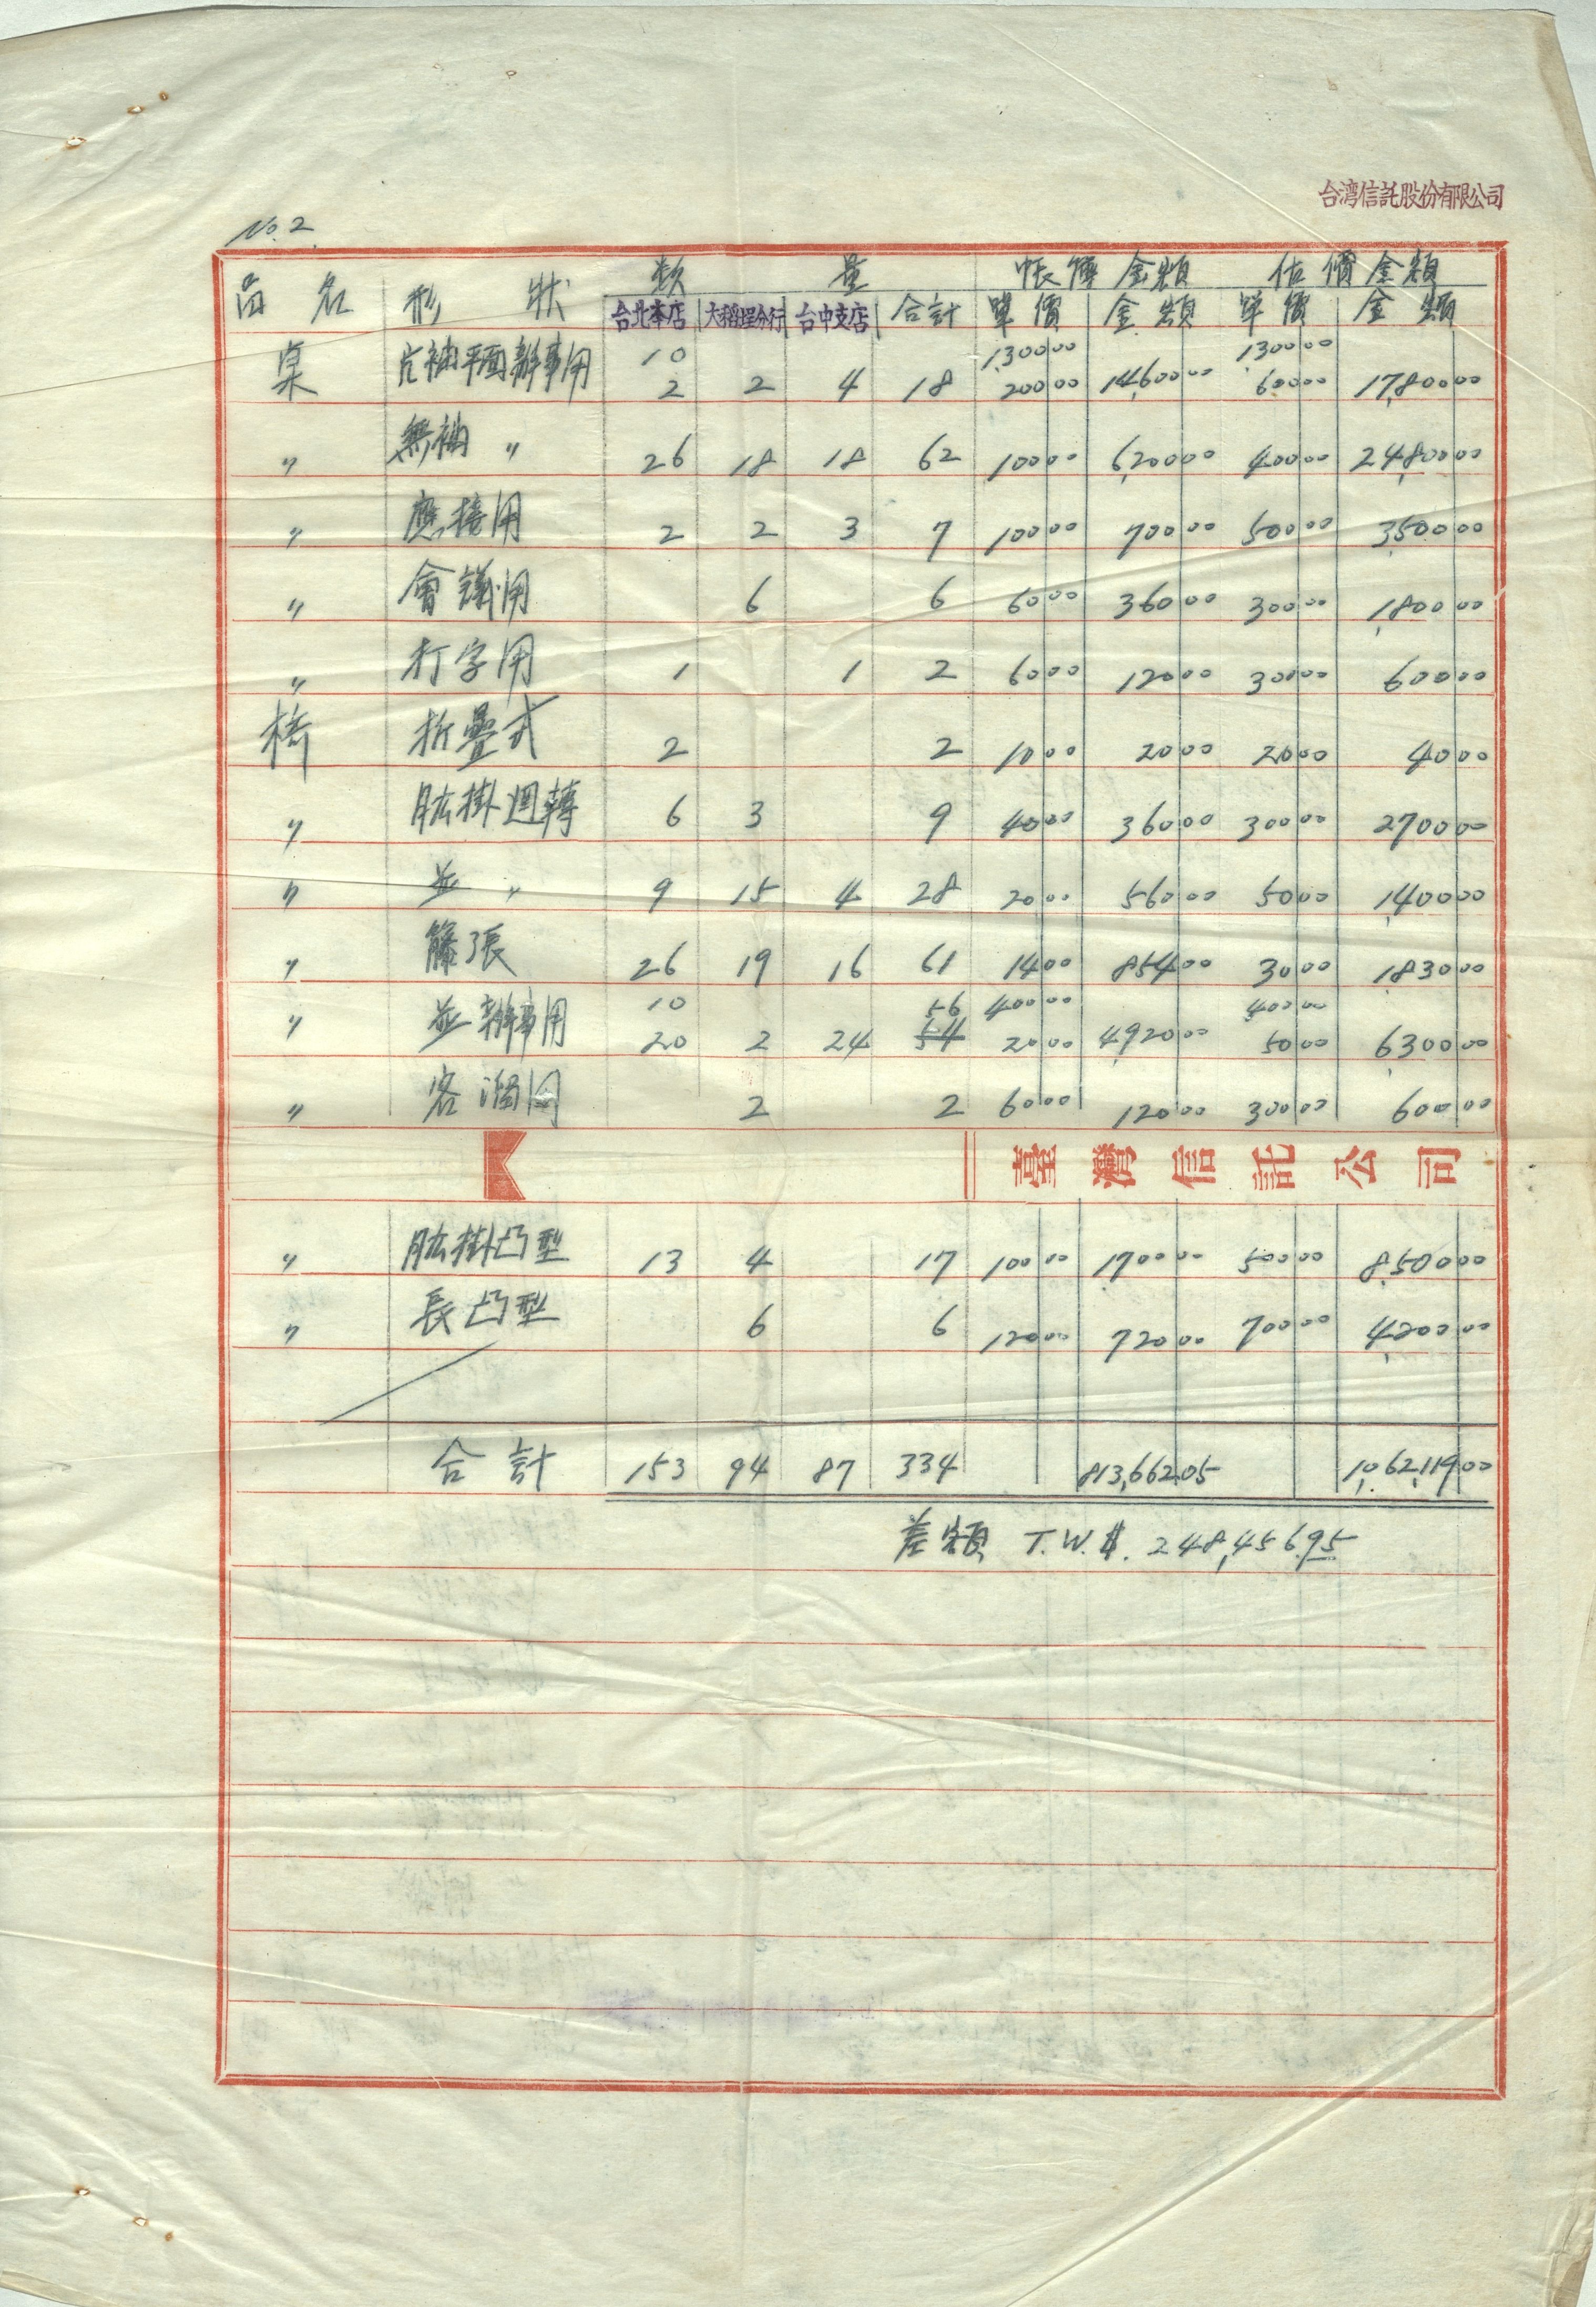 台湾信託股份有限公司
No. 2.
品 名 形 狀 数 量 帳簿金額 估價金額
台北本店 大稻埕分行 台中支店 合計 單價 金額 單價 金額
10 1,300 00 1,300 00
桌 片袖平面辦事用 2 2 4 18 200 00 14,600 00 600 00 17,800 00
〃 無袖 〃 26 18 18 62 100 00 6,200 00 400 00 24,800 00
〃 應接用 2 2 3 7 100 00 700 00 500 00 3,500 00
〃 會議用 6 6 60 00 360 00 300 00 1,800 00
〃 打字用 1 1 2 60 00 120 00 300 00 600 00
椅 折疊式 2 2 10 00 20 00 20 00 40 00
〃 肱掛廻轉 6 3 9 40 00 360 00 300 00 2700 00
〃 並 〃 9 15 4 28 20 00 560 00 50 00 1,400 00
〃 籐張 26 19 16 61 14 00 854 00 30 00 1,830 00
10 56 400 00 400 00
〃 並辦事用 20 2 24 54 20 00 4,920 00 50 00 6,300 00
〃 客溜用 2 2 60 00 120 00 300 00 600 00
臺灣信託公司
〃 肱掛凸型 13 4 17 100 00 1,700 00 500 00 8,500 00
〃 長凸型 6 6 120 00 720 00 700 00 4,200 00
合計 153 94 87 334 813,662 05 1,062,119 00
差額 T.W.$. 248,456.95